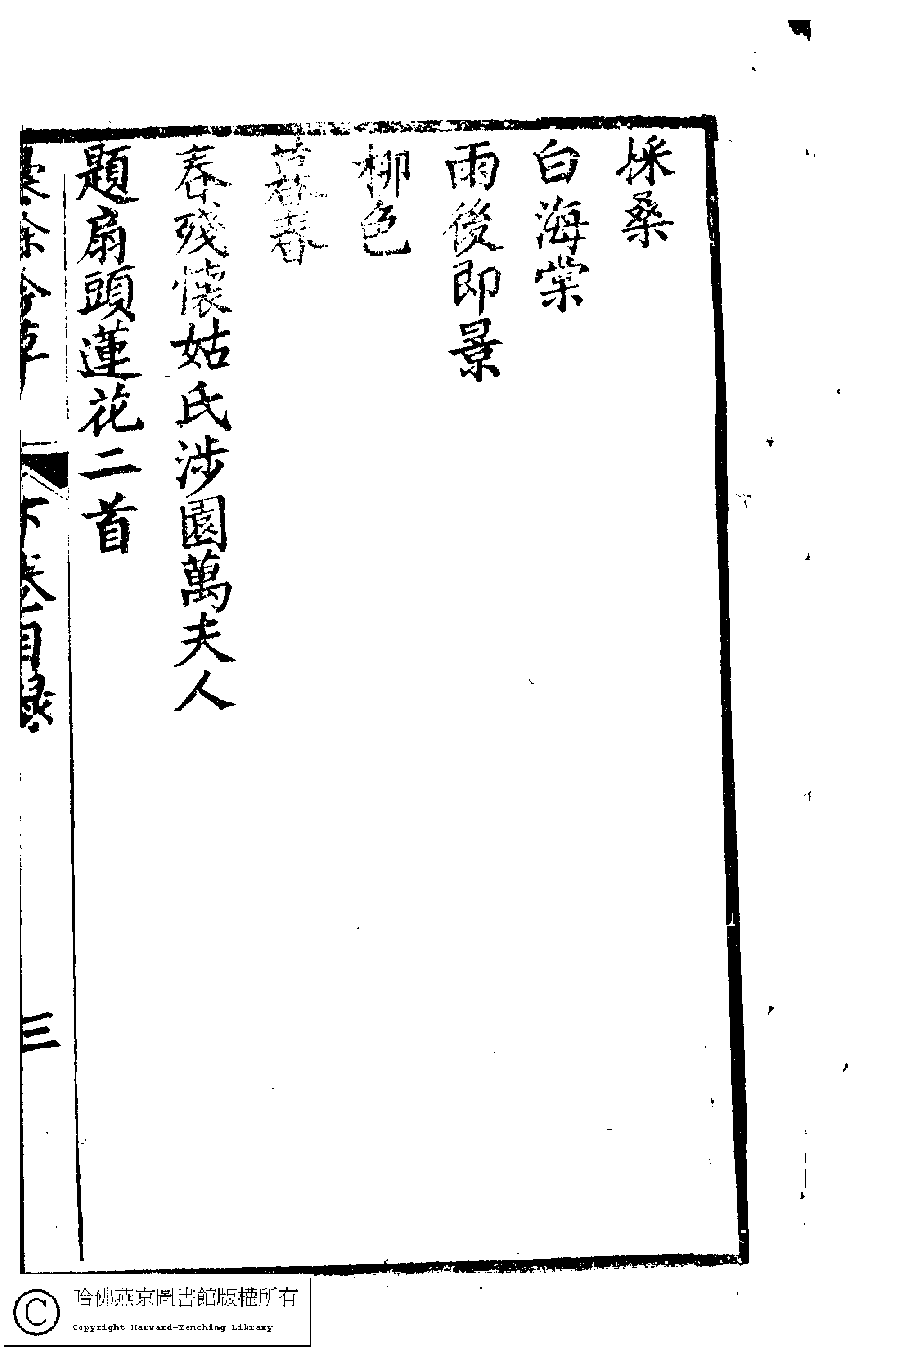 採桑
白海棠
雨後即景
柳色
暮春
春殘懷姑氏涉園萬夫人
題扇頭蓮花二首
餘吟草
下卷目錄
三
哈佛燕京圖書館版權所有
Copyright Harvard-Yenching Library